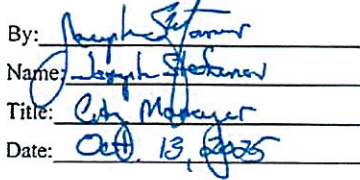 By: Joseph Stefanov
Name: Joseph Stefanov
Title: City Manager
Date: Oct. 13, 2025